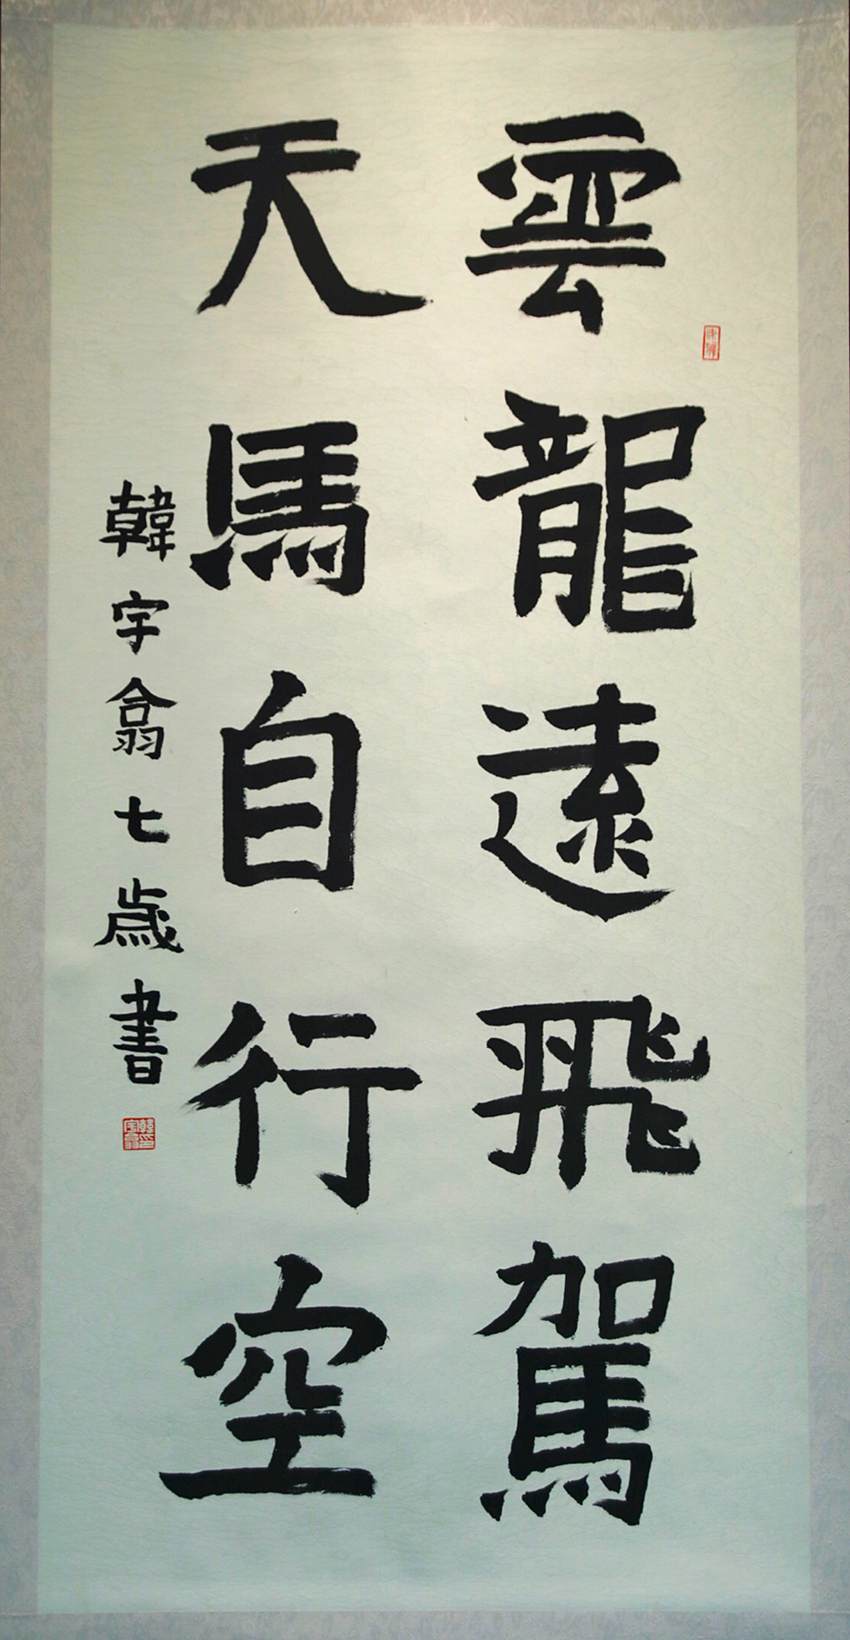 雲龍遠飛駕
天馬自行空
韓宇翕七歲書